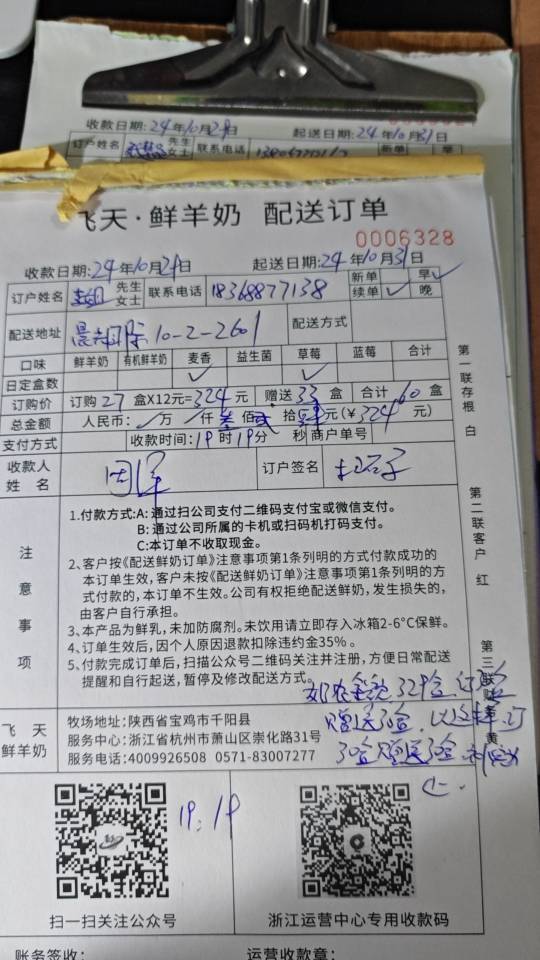 收款日期:24年10月29日 起送日期:24年10月31日
订户姓名 先生 女士 联系电话 新单 早
飞天·鲜羊奶 配送订单
0006328
收款日期:24年10月29日 起送日期:24年10月31日
订户姓名 先生 女士 联系电话 18368877138 新单 早✓
续单✓ 晚
配送地址 10-2-2601 配送方式
口味 鲜羊奶 有机鲜羊奶 麦香 益生菌 草莓 蓝莓 合计
日定盒数 ✓ ✓
订购价 订购27盒X12元=324元 赠送33盒 合计60盒
总金额 人民币: /万 /仟叁佰贰拾肆元(¥324元)
支付方式 收款时间:19时19分 秒 商户单号
收款人姓名 订户签名
注意事项
1.付款方式:A: 通过扫公司支付二维码支付宝或微信支付。
B: 通过公司所属的卡机或扫码机打码支付。
C:本订单不收取现金。
2、客户按《配送鲜奶订单》注意事项第1条列明的方式付款成功的
本订单生效,客户未按《配送鲜奶订单》注意事项第1条列明的方
式付款的,本订单不生效。公司有权拒绝配送鲜奶,发生损失的,
由客户自行承担。
3、本产品为鲜乳,未加防腐剂。未饮用请立即存入冰箱2-6°C保鲜。
4、订单生效后,因个人原因退款扣除违约金35%。
5、付款完成订单后,扫描公众号二维码关注并注册,方便日常配送
提醒和自行起送,暂停及修改配送方式。
订30盒
赠送30盒,以这样订
30盒赠送30盒
飞天鲜羊奶
牧场地址:陕西省宝鸡市千阳县
服务中心:浙江省杭州市萧山区崇化路31号
服务电话:4009926508 0571-83007277
19:19
扫一扫关注公众号 浙江运营中心专用收款码
账务签收: 运营收款章:
第一联存根 白
第二联客户 红
第三联财务 黄